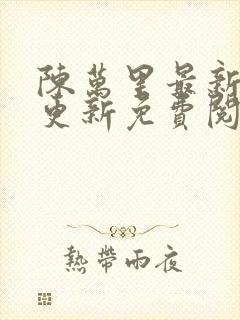 陳萬里最新
更新免費閱
熱帶雨夜